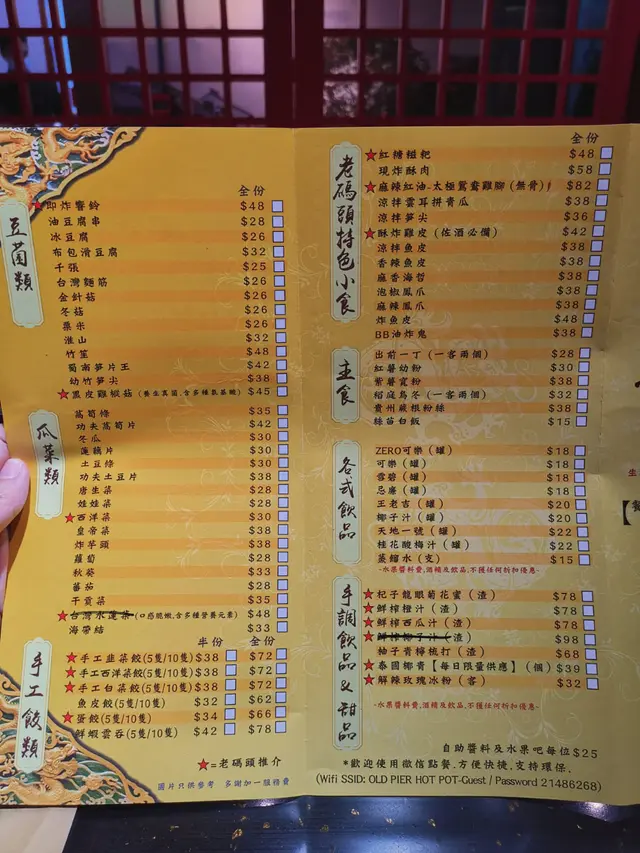 豆菌類
全份
★即炸響鈴 $48
油豆腐串 $28
冰豆腐 $26
布包滑豆腐 $32
千張 $25
台灣麵筋 $26
金針菇 $26
冬菇 $26
粟米 $26
淮山 $32
竹笙 $48
蜀南笋片王 $42
幼竹笋尖 $38
★黑皮雞樅菇(養生真菌,含多種氨基酸) $45
瓜菜類
萵筍條 $35
功夫萵筍片 $42
冬瓜 $30
蓮藕片 $30
土豆條 $30
功夫土豆片 $38
唐生菜 $28
娃娃菜 $28
★西洋菜 $30
皇帝菜 $38
炸芋頭 $38
蘿蔔 $28
秋葵 $33
蕃茄 $28
干貢菜 $35
★台灣水蓮菜(口感脆嫩,含多種營養元素) $48
海帶結 $33
手工餃類
半份 全份
★手工韭菜餃(5隻/10隻) $38 $72
★手工西洋菜餃(5隻/10隻) $38 $72
★手工白菜餃(5隻/10隻) $38 $72
魚皮餃(5隻/10隻) $32 $62
★蛋餃(5隻/10隻) $34 $66
鮮蝦雲吞(5隻/10隻) $42 $78
★=老碼頭推介
圖片只供參考 多謝加一服務費
老碼頭特色小食
全份
★紅糖糍粑 $48
現炸酥肉 $58
★麻辣紅油-太極鴛鴦雞腳(無骨) $82
涼拌雲耳拼青瓜 $38
涼拌笋尖 $36
★酥炸雞皮(佐酒必備) $42
涼拌魚皮 $38
香辣魚皮 $38
麻香海哲 $38
泡椒鳳爪 $38
麻辣鳳爪 $38
炸魚皮 $48
BB油炸鬼 $38
主食
出前一丁(一客兩個) $28
紅薯幼粉 $30
紫薯寬粉 $38
稻庭烏冬(一客兩個) $32
貴州蕨根粉絲 $38
絲苗白飯 $15
各式飲品
ZERO可樂(罐) $18
可樂(罐) $18
雪碧(罐) $18
忌廉(罐) $18
王老吉(罐) $20
椰子汁(罐) $20
天地一號(罐) $22
桂花酸梅汁(罐) $22
蒸餾水(支) $15
-水果醬料費,酒精及飲品,不獲任何折扣優惠-
手調飲品&甜品
★杞子龍眼菊花蜜(渣) $78
★鮮榨橙汁(渣) $78
★鮮榨西瓜汁(渣) $78
★鮮榨椰子汁(渣) $98
柚子青檸梳打(渣) $68
★泰國椰青【每日限量供應】(個) $39
★解辣玫瑰冰粉(客) $32
-水果醬料費,酒精及飲品,不獲任何折扣優惠-
自助醬料及水果吧每位$25
*歡迎使用微信點餐.方便快捷.支持環保.
(Wifi SSID: OLD PIER HOT POT-Guest / Password 21486268)